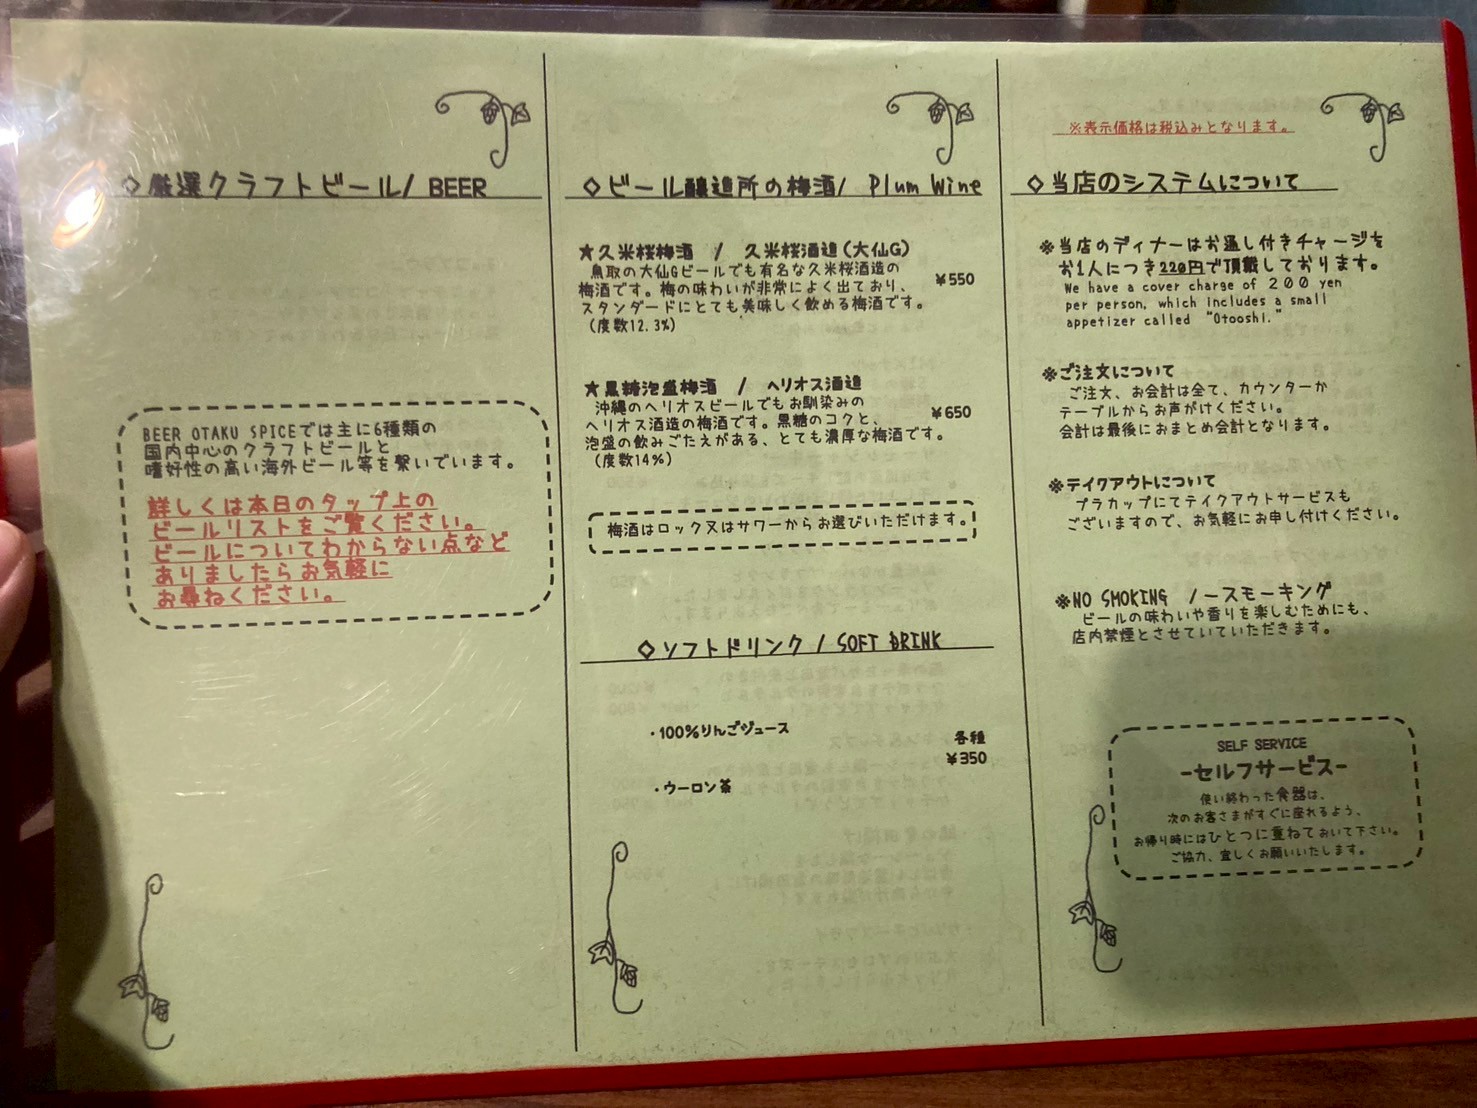 ◇厳選クラフトビール/ BEER
BEER OTAKU SPICEでは主に6種類の
国内中心のクラフトビールと
嗜好性の高い海外ビール等を繋いでいます。
詳しくは本日のタップ上の
ビールリストをご覧ください。
ビールについてわからない点など
ありましたらお気軽に
お尋ねください。
◇ビール醸造所の梅酒/ Plum Wine
★久米桜梅酒 / 久米桜酒造(大仙G)
鳥取の大仙Gビールでも有名な久米桜酒造の
梅酒です。梅の味わいが非常によく出ており、
スタンダードにとても美味しく飲める梅酒です。
(度数12.3%)
¥550
★黒糖泡盛梅酒 / ヘリオス酒造
沖縄のヘリオスビールでもお馴染みの
ヘリオス酒造の梅酒です。黒糖のコクと、
泡盛の飲みごたえがある、とても濃厚な梅酒です。
(度数14%)
¥650
梅酒はロック又はサワーからお選びいただけます。
◇ソフトドリンク / SOFT DRINK
・100%りんごジュース
・ウーロン茶
各種
¥350
※表示価格は税込みとなります。
◇当店のシステムについて
※当店のディナーはお通し付きチャージを
お1人につき220円で頂戴しております。
We have a cover charge of 200 yen
per person, which includes a small
appetizer called "Otooshi."
※ご注文について
ご注文、お会計は全て、カウンターか
テーブルからお声がけください。
会計は最後におまとめ会計となります。
※テイクアウトについて
プラカップにてテイクアウトサービスも
ございますので、お気軽にお申し付けください。
※NO SMOKING ノースモーキング
ビールの味わいや香りを楽しむためにも、
店内禁煙とさせていていただきます。
SELF SERVICE
-セルフサービス-
使い終わった食器は、
次のお客さまがすぐに座れるよう、
お帰り時にはひとつに重ねておいて下さい。
ご協力、宜しくお願いいたします。